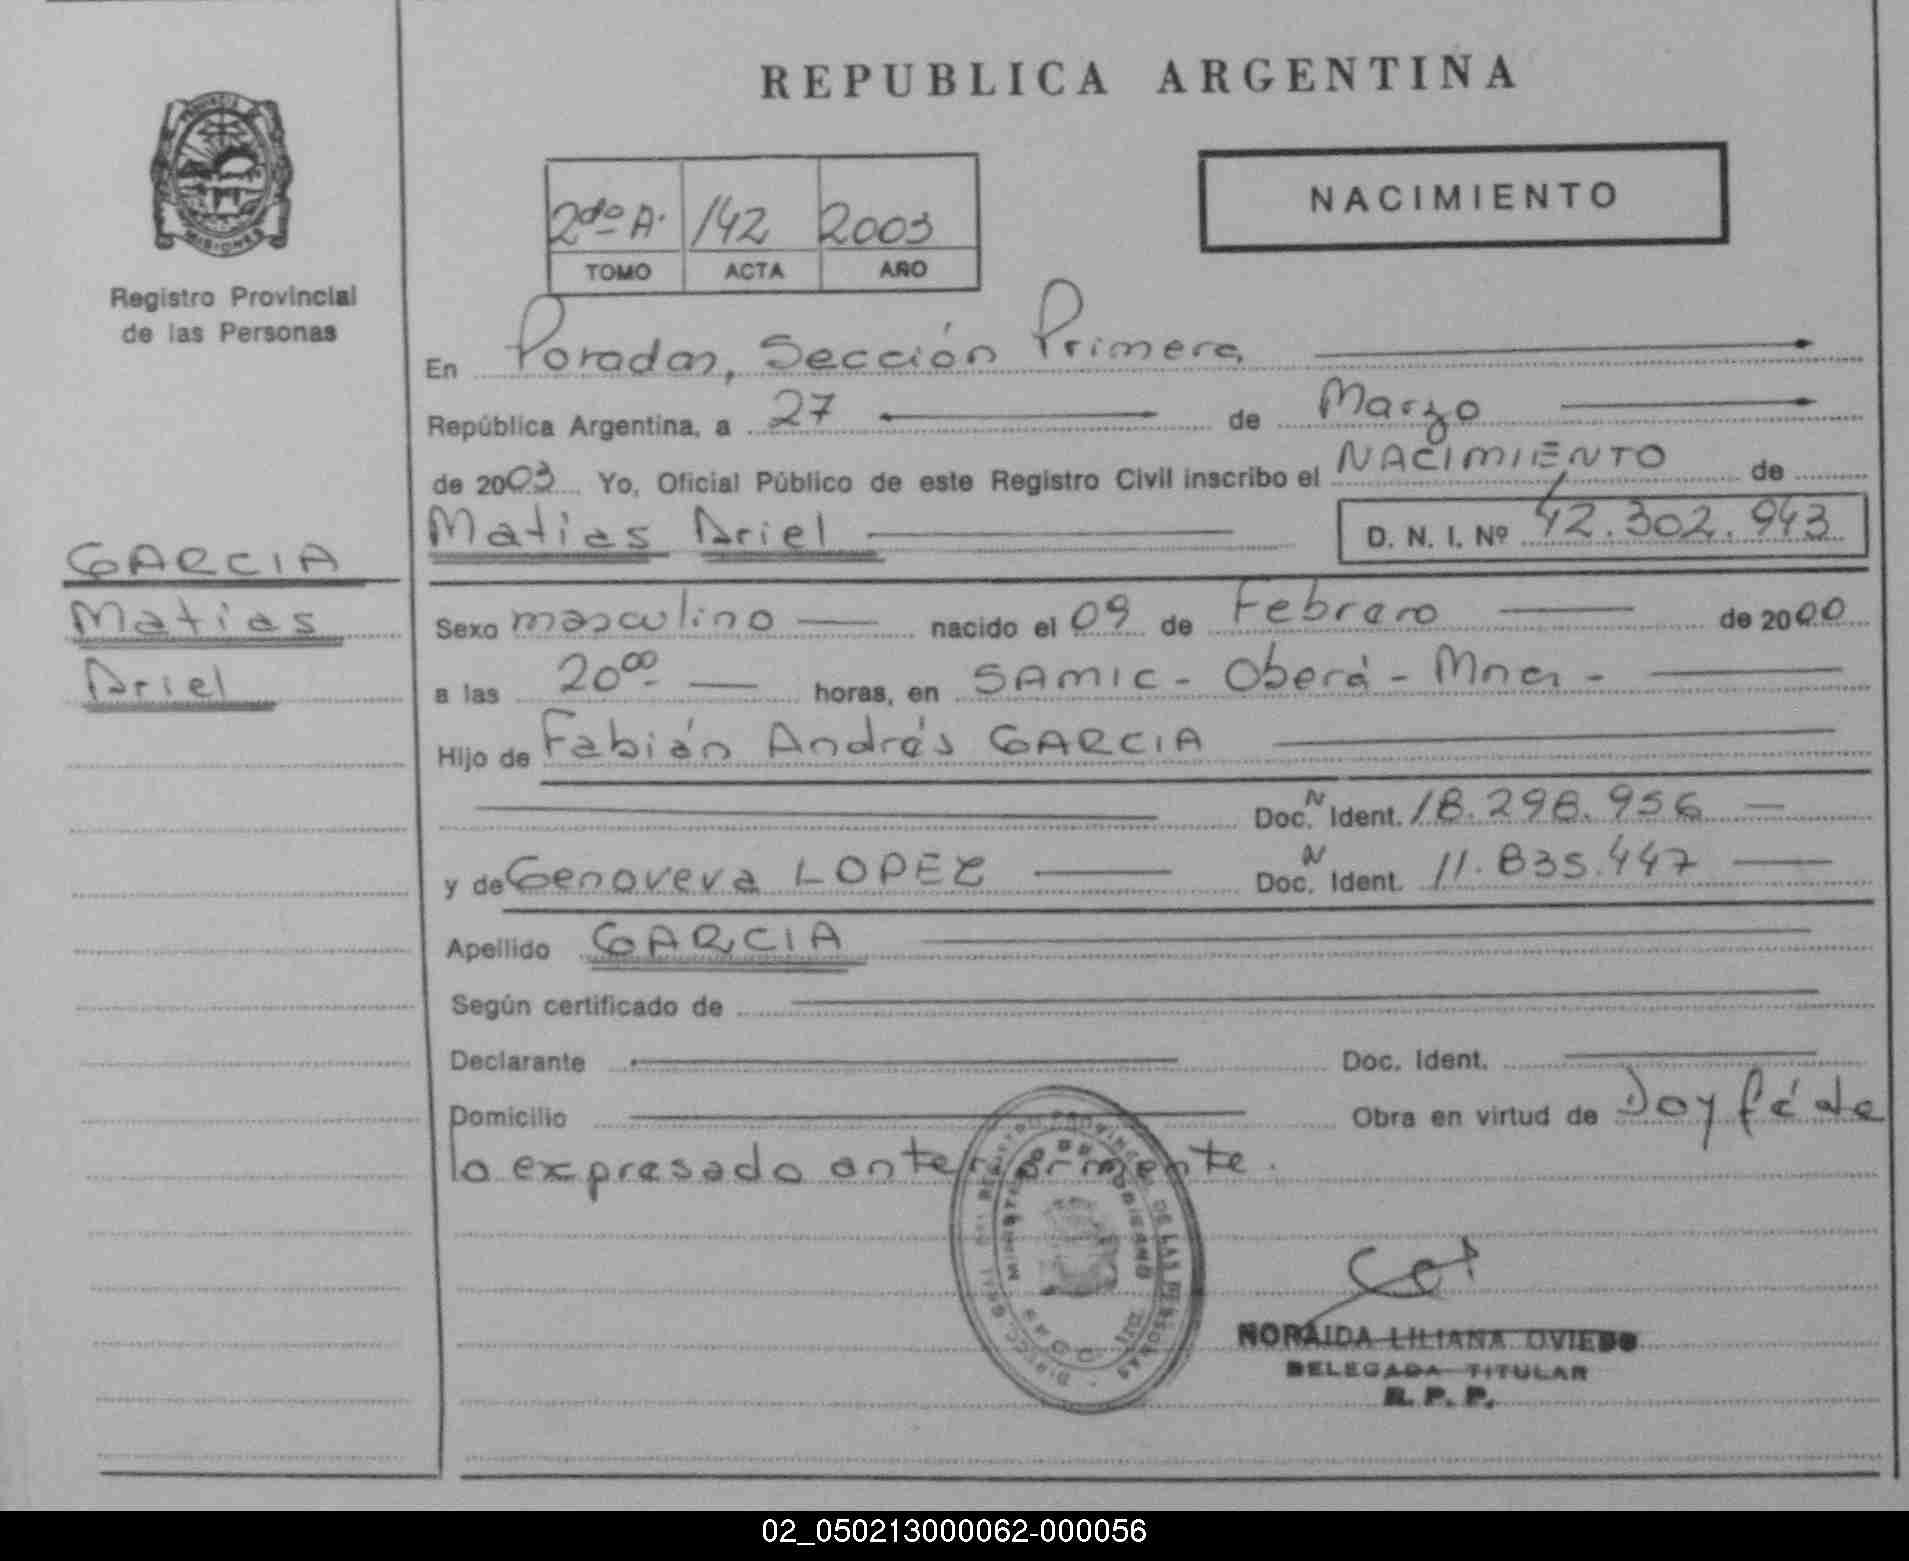 REPUBLICA ARGENTINA
PROVINCIA
MISIONES
Registro Provincial
de las Personas
2do A. 142 2003
TOMO ACTA AÑO
NACIMIENTO
En Posadas, Sección Primera
República Argentina, a 27 de Marzo
de 2003 Yo, Oficial Público de este Registro Civil inscribo el NACIMIENTO de
Matias Ariel D. N. I. Nº 42.302.943
GARCIA
Matias
Ariel
Sexo masculino nacido el 09 de Febrero de 2000
a las 20⁰⁰ horas, en SAMIC - Oberá - Mnes -
Hijo de Fabián Andrés GARCIA
Doc. N Ident. 18.298.956
y de Genoveva LOPEZ Doc. N Ident. 11.835.447
Apellido GARCIA
Según certificado de
Declarante Doc. Ident.
Domicilio Obra en virtud de Doy fé de
lo expresado anteriormente.
DE LAS PERSONAS
MINISTERIO DE GOBIERNO
NORAIDA LILIANA OVIEDO
DELEGADA TITULAR
R. P. P.
02_050213000062-000056